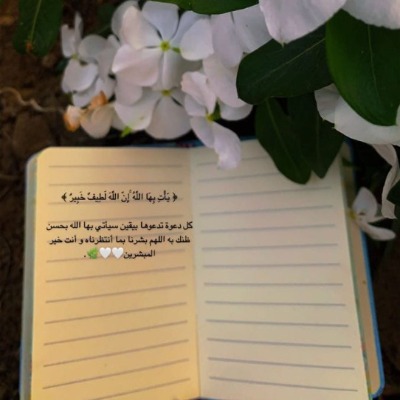 ﴿ يَأْتِ بِهَا اللَّهُ ۚ إِنَّ اللَّهَ لَطِيفٌ خَبِيرٌ ﴾
كل دعوة تدعوها بيقين سيأتي بها الله بحسن
ظنك به اللهم بشرنا بما أنتظرناه و أنت خير
المبشرين🤍🤍🌿.